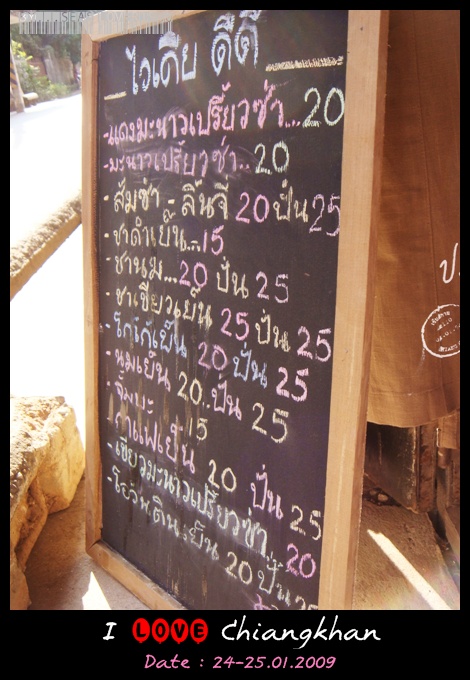 ไอเดีย ดีดี
-แดงมะนาวเปรี้ยวซ่า...20
-มะนาวเปรี้ยวซ่า..20
-ส้มซ่า - ลิ้นจี่ 20 ปั่น 25
-ชาดำเย็น...15
-ชานม...20 ปั่น 25
-ชาเขียวเย็น 25 ปั่น 25
-โกโก้เย็น 20 ปั่น 25
-นมเย็น 20..ปั่น 25
-จั๊มบะ 15
-กาแฟเย็น 20 ปั่น 25
-เขียวมะนาวเปรี้ยวซ่า 20
-โอวัลตินเย็น 20 ปั่น 25
I LOVE Chiangkhan
Date : 24-25.01.2009